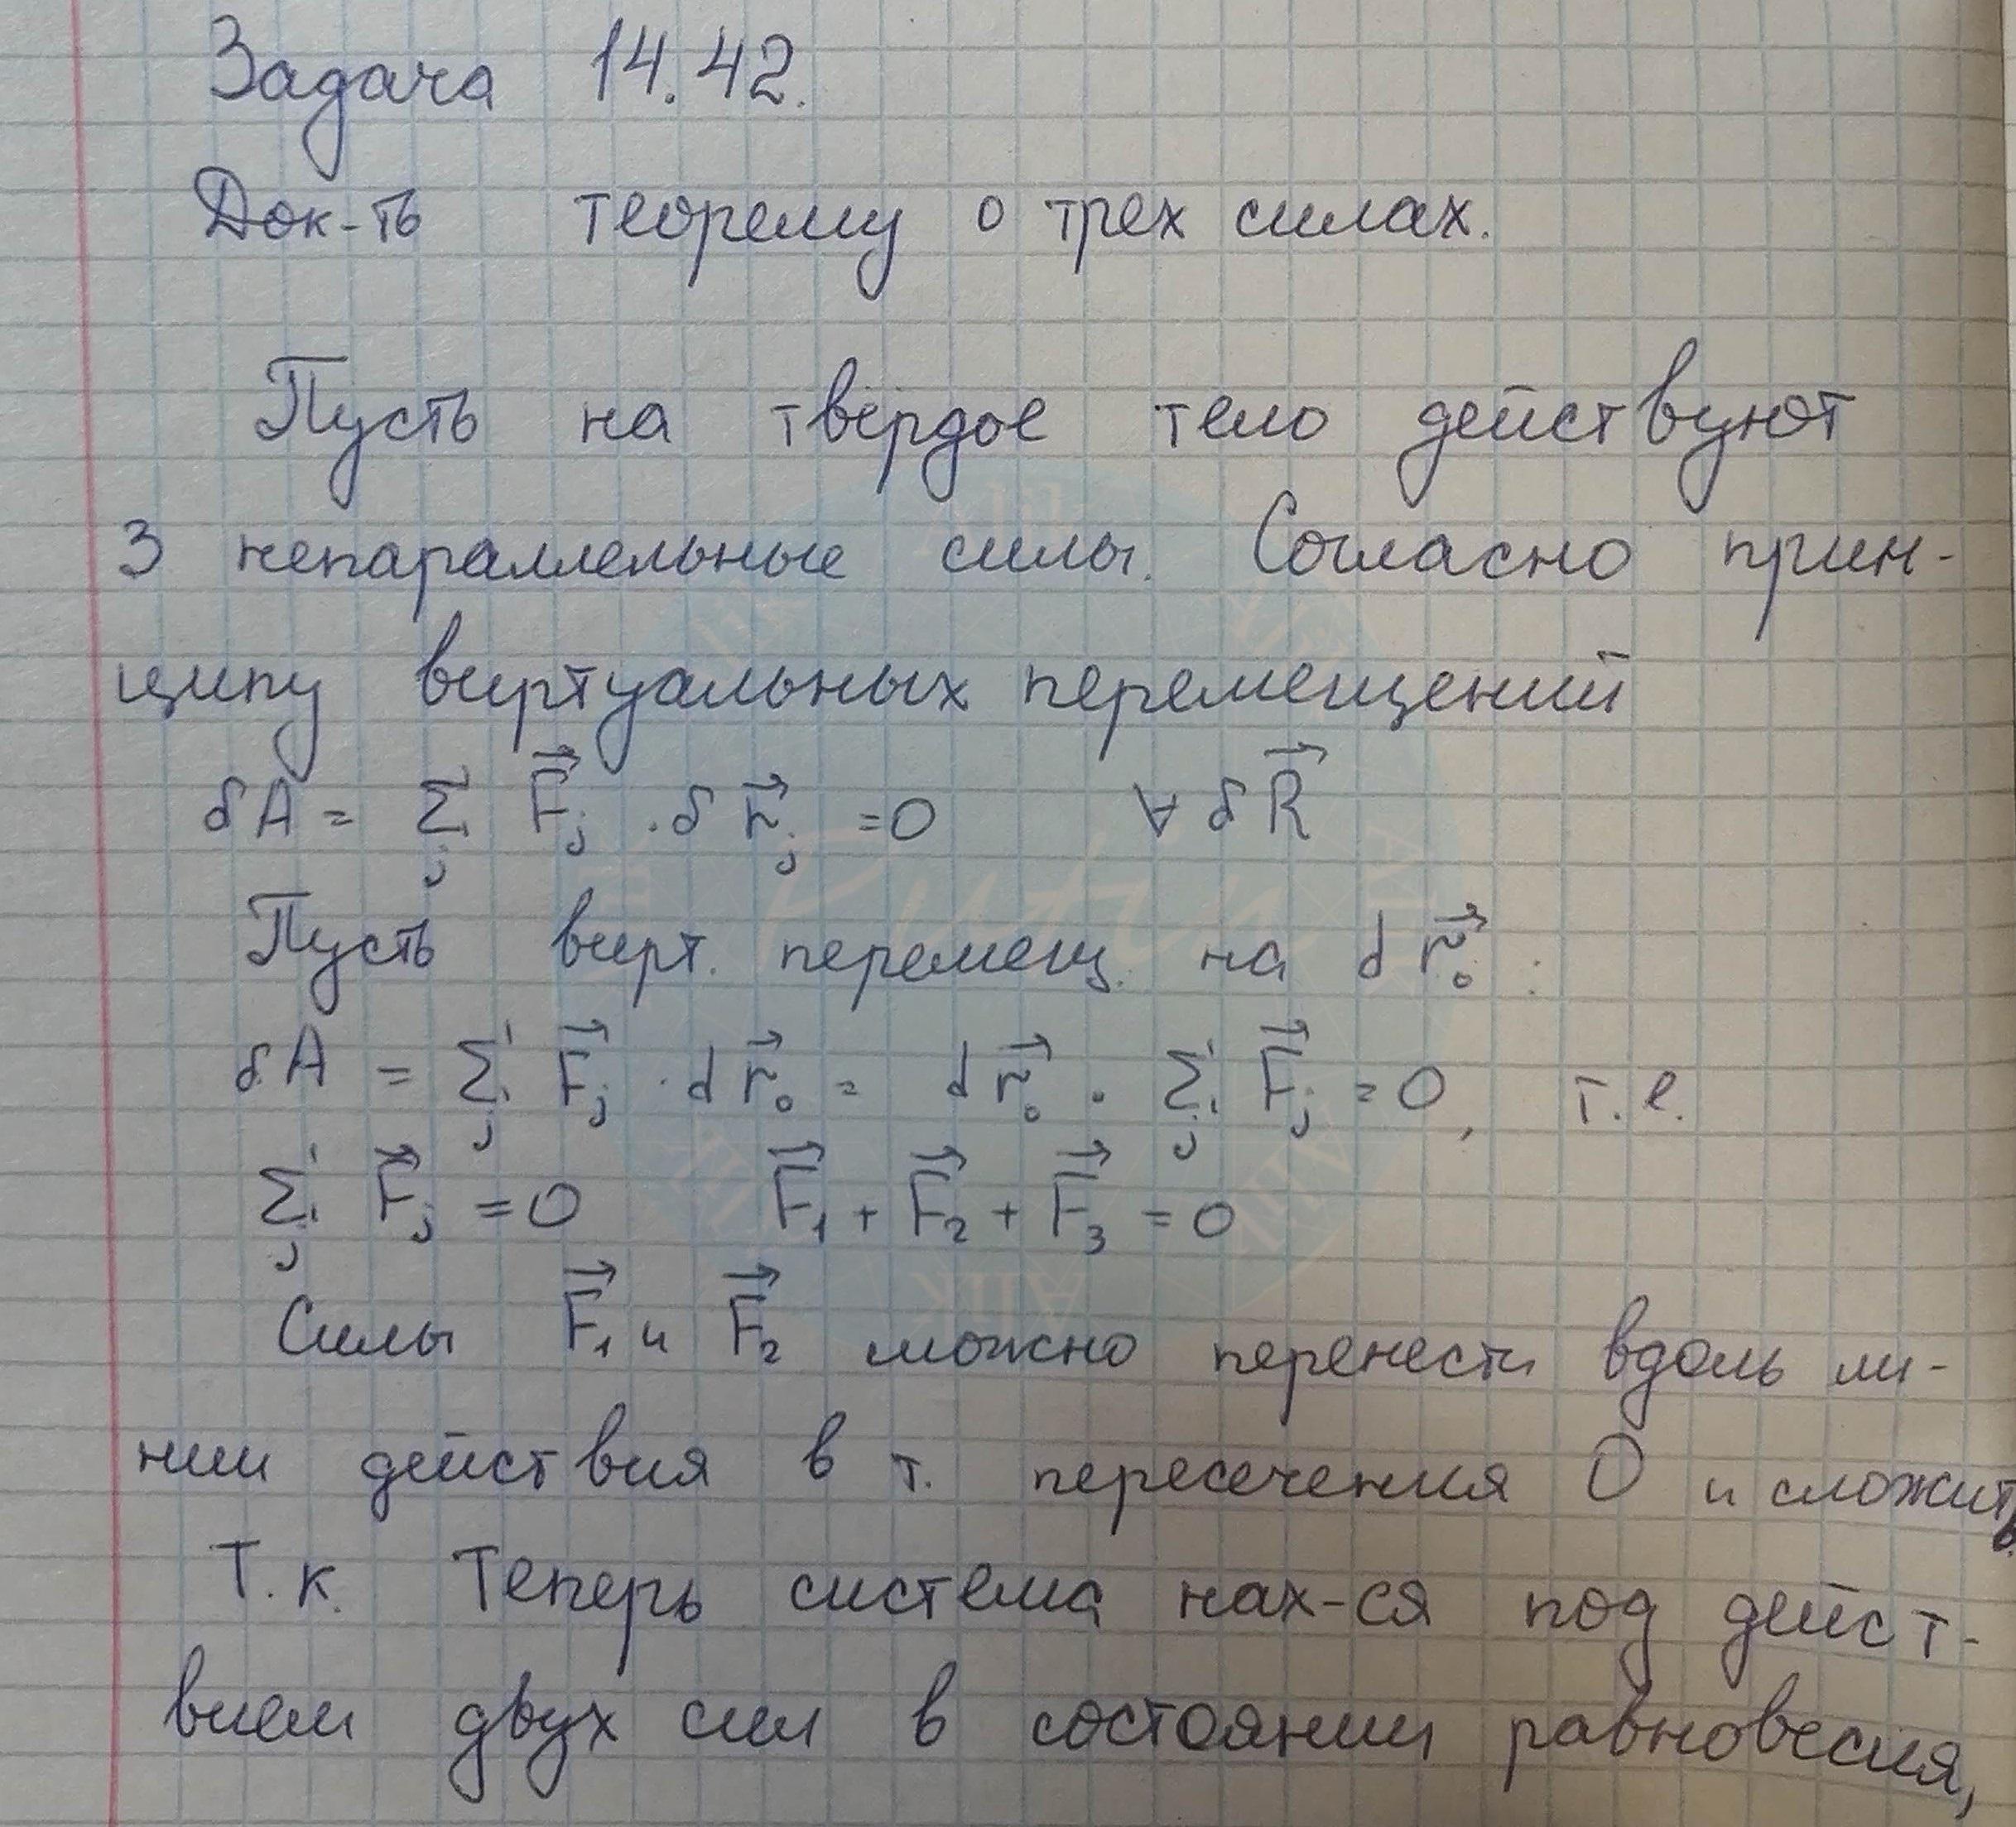 Задача 14.42.
Док-ть теорему о трех силах.
Пусть на твердое тело действуют
3 непараллельные силы. Согласно прин-
ципу виртуальных перемещений
δA = Σ_j F⃗_j · δr⃗_j = 0 ∀ δR⃗
Пусть вирт. перемещ. на dr⃗₀ :
δA = Σ_j F⃗_j · dr⃗₀ = dr⃗₀ · Σ_j F⃗_j = 0, т.е.
Σ_j F⃗_j = 0 F⃗₁ + F⃗₂ + F⃗₃ = 0
Силы F⃗₁ и F⃗₂ можно перенести вдоль ли-
нии действия в т. пересечения О и сложить.
Т.к. Теперь система нах-ся под дейст-
вием двух сил в состоянии равновесия,